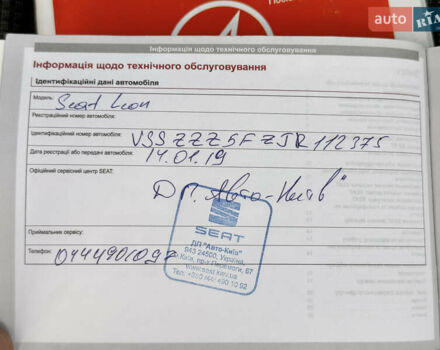 auto RIA
Інформація щодо технічного обслуговування
Інформація щодо технічного обслуговування
Ідентифікаційні дані автомобіля
Модель: Seat Leon
Реєстраційний номер автомобіля:
Ідентифікаційний номер автомобіля: VSSZZZ5FZJR112375
Дата реєстрації або передачі автомобіля: 14.01.19
Офіційний сервісний центр SEAT:
Дп. „Авто-Київ"
SEAT
ДП "Авто-Київ"
943 24500, Україна,
м.Київ, пр-т Перемоги, 67
www.seat.kiev.ua
Тел.: +380 (44) 490 10 92
Приймальник сервісу:
Телефон: 0444901092